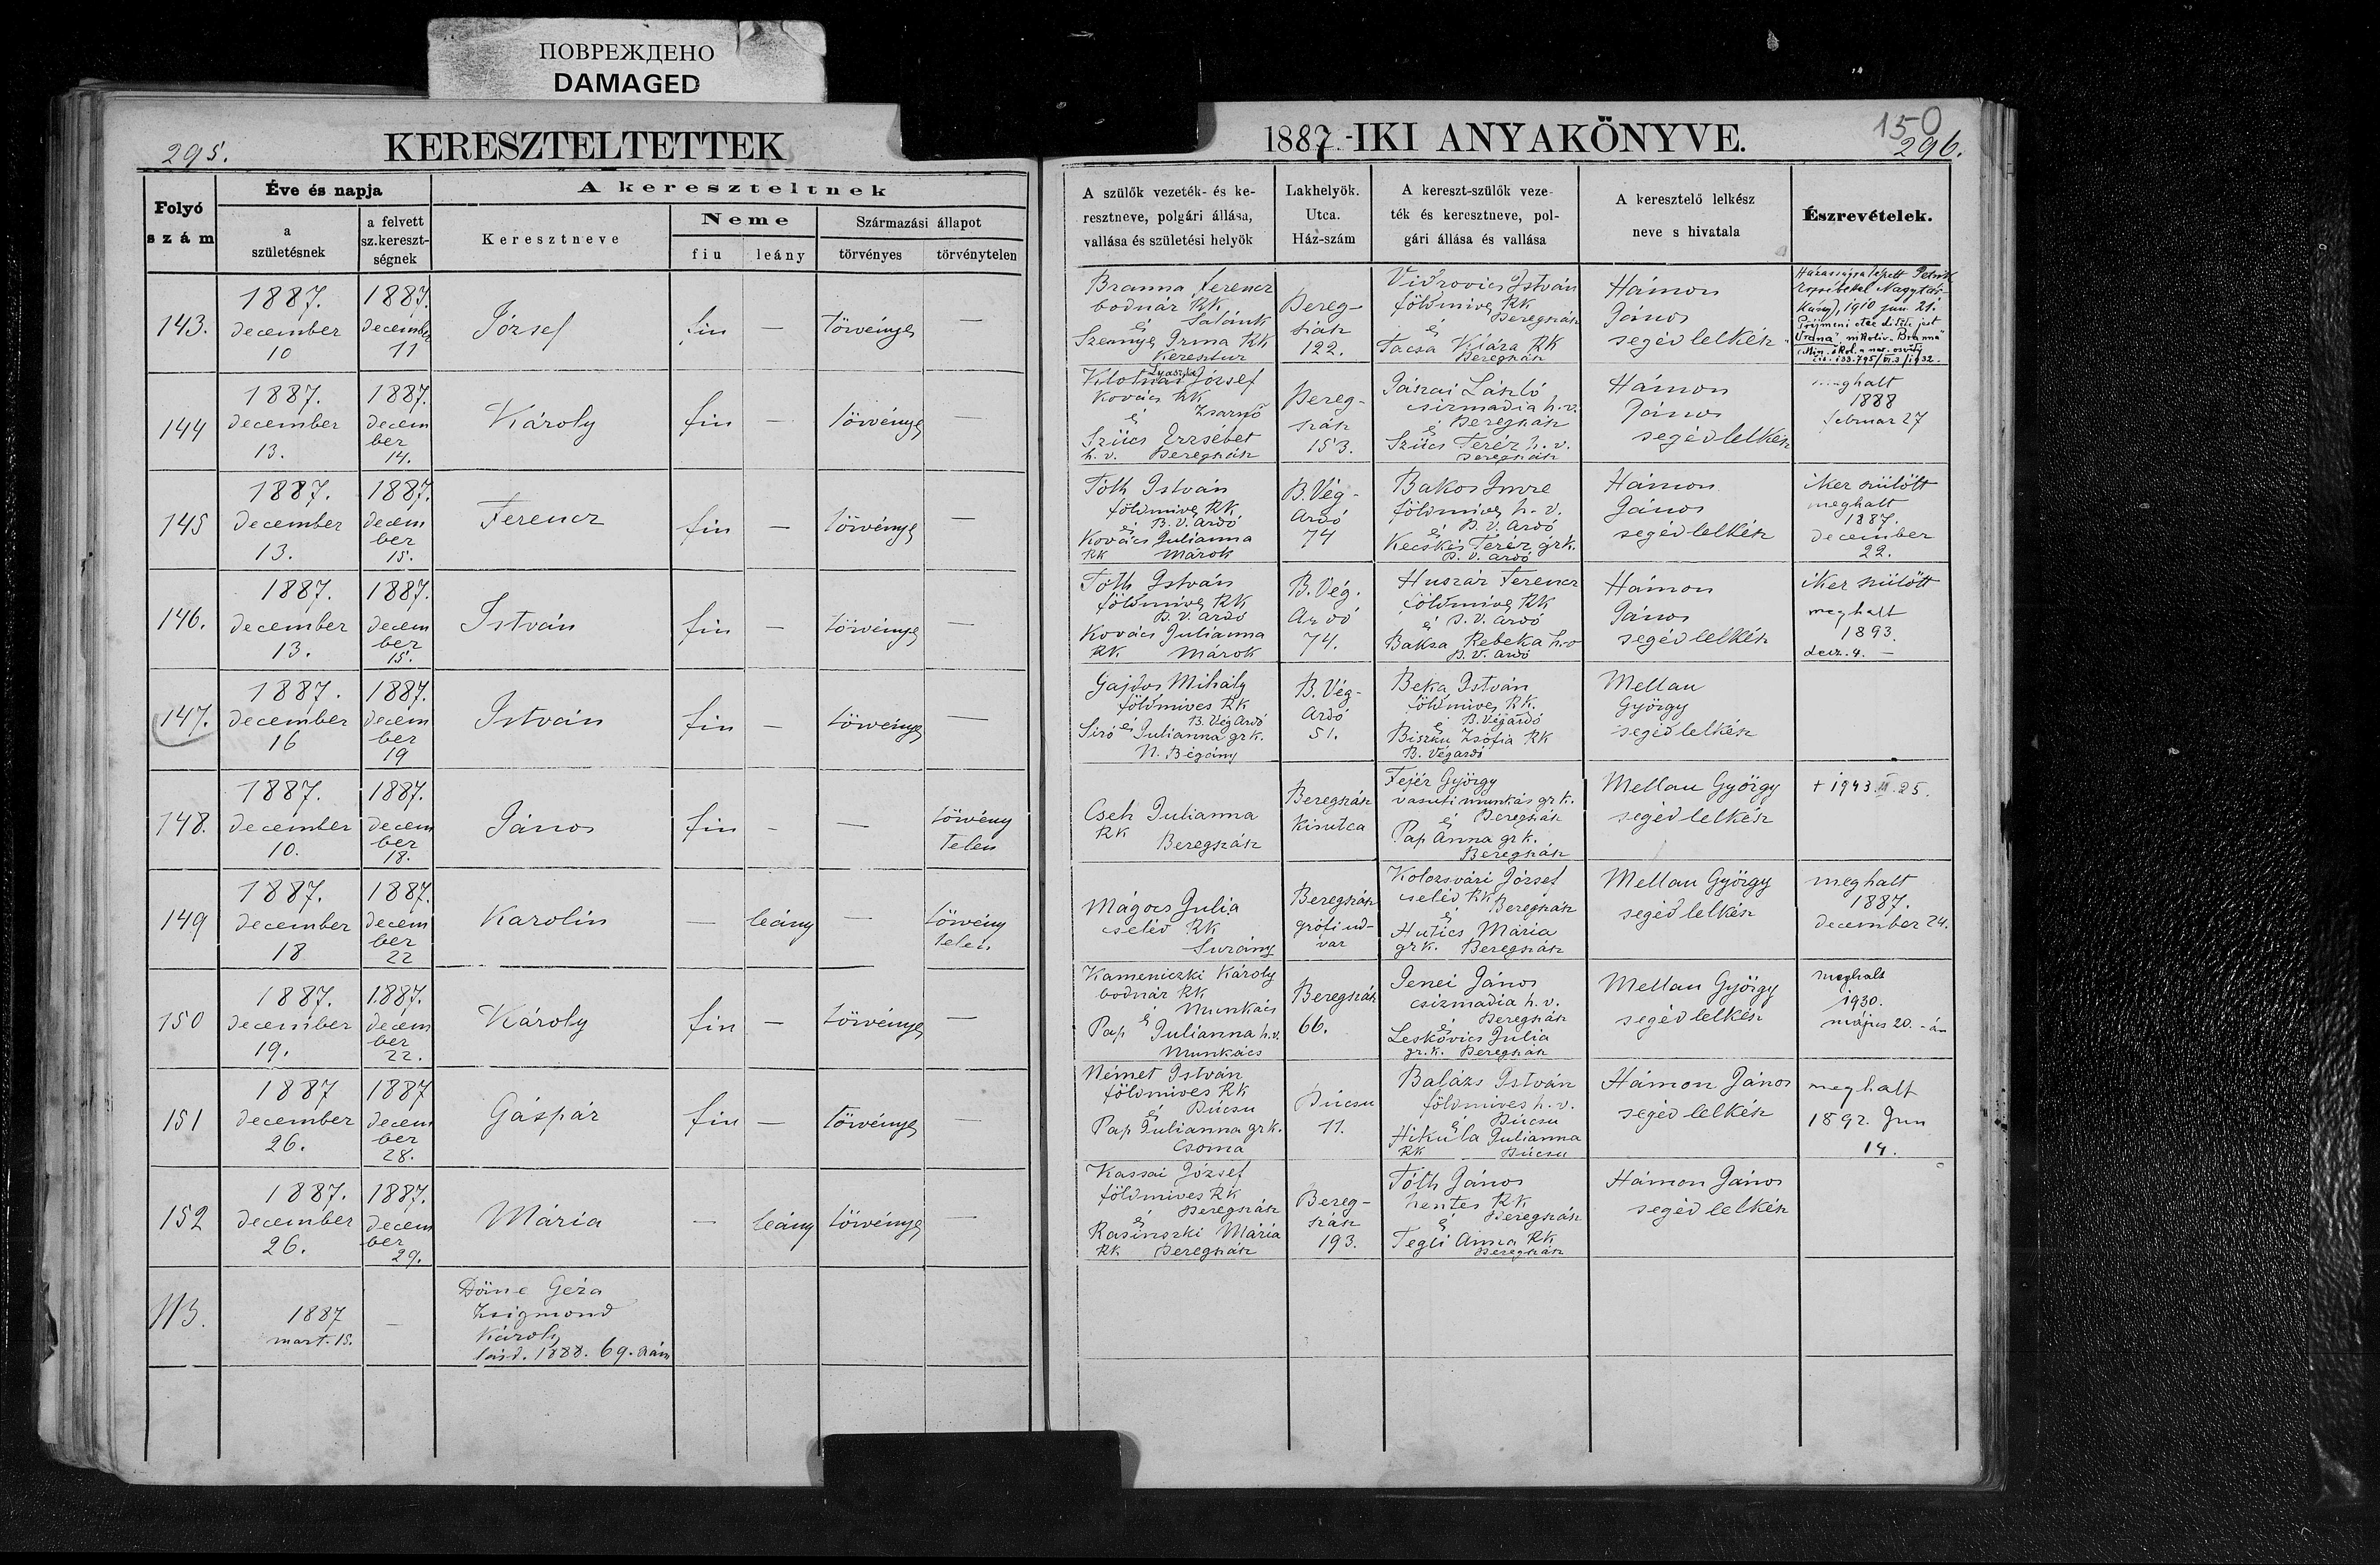 ПОВРЕЖДЕНО
DAMAGED
295.
KERESZTELTETTEK
Folyó
szám
Éve és napja
a
születésnek
a felvett
sz.kereszt-
ségnek
A kereszteltnek
Keresztneve
Neme
fiu
leány
Származási állapot
törvényes
törvénytelen
143.
1887.
december
10
1887.
december
11
József
fiu
—
törvényes
—
144
1887.
december
13.
1887.
decem
ber
14.
Károly
fiu
—
törvényes
—
145
1887.
december
13.
1887.
decem
ber
15.
Ferencz
fiu
—
törvényes
—
146.
1887.
december
13.
1887.
decem
ber
15.
István
fiu
—
törvényes
—
147.
1887.
december
16
1887.
decem
ber
19
István
fiu
—
törvényes
—
148.
1887.
december
10.
1887.
decem
ber
18.
János
fiu
-
—
törvény
telen
149
1887.
december
18
1887.
decem
ber
22
Karolin
—
leány
—
törvény
telen.
150
1887.
december
19.
1887.
decem
ber
22.
Károly
fiu
—
törvényes
—
151
1887
december
26.
1887
decem
ber
28.
Gáspár
fiu
—
törvényes
—
152
1887.
december
26.
1887.
decem
ber
29.
Mária
—
leány
törvényes
—
113.
1887
mart. 15.
—
Döme Géza
Zsigmond
Károly
lásd. 1888. 69. szám
1887.-IKI ANYAKÖNYVE.
150
296.
A szülők vezeték- és ke-
resztneve, polgári állása,
vallása és születési helyök
Lakhelyök.
Utca.
Ház-szám
A kereszt-szülők veze-
ték és keresztneve, pol-
gári állása és vallása
A keresztelő lelkész
neve s hivatala
Észrevételek.
Branna Ferencz
bodnár RK
Salánk
és
Szennyes Irma RK
Keresztur
Bereg-
szász
122.
Vidrovics István
földmives RK
Beregszász
és
Tacsa Klára RK
Beregszász
Hámon
János
segédlelkész
Házasságra lépett
Erzsébettel
1910 jun. 21.
József
kovács RK
és
Szücs Erzsébet
h. v. Beregszász
Bereg-
szász
153.
Jászai László
csizmadia h. v.
és Beregszász
Szücs Teréz h. v.
Beregszász
Hámon
János
segédlelkész
meghalt
1888
februar 27
Tóth István
földmives RK
és B. V. Ardó
Kovács Julianna
RK Márok
B. Vég-
Ardó
74
Bakos Imre
földmives h. v.
és B. V. Ardó
Kecskés Teréz grk.
B. V. Ardó
Hámon
János
segédlelkész
iker szülött
meghalt
1887.
december
22.
Tóth István
földmives RK
B. V. Ardó
Kovács Julianna
RK. Márok
B. Vég.
Ardó
74.
Huszár Ferencz
földmives RK
és B. V. Ardó
Baksa Rebeka h. v
B. V. Ardó
Hámon
János
segédlelkész
iker szülött
meghalt
1893.
decz. 4. —
Gajdos Mihály
földmives RK
B. Vég Ardó
Siró és Julianna grk.
N. Bégány
B. Vég-
Ardó
51.
Beka István
földmives RK.
és B. Végardó
Biszku Zsófia RK
B. Végardó
Mellau
György
segédlelkész
Cseh Julianna
RK
Beregszász
Beregszász
Kisutca
Fejér György
vasuti munkás gr k.
és Beregszász
Pap Anna gr k.
Beregszász
Mellau György
segédlelkész
Mágocs Julia
cseléd RK
Surány
Beregszász
grófi ud-
var
Kolozsvári József
cseléd RK
és Beregszász
Hutics Mária
gr k. Beregszász
Mellau György
segédlelkész
meghalt
1887.
december 24.
Kameniczki Károly
bodnár RK
és Munkács
Pap Julianna h. v.
Munkács
Beregszász
66.
Jenei János
csizmadia h. v.
és Beregszász
Leskovics Julia
gr. k. Beregszász
Mellau György
segédlelkész
meghalt
1930.
május 20. - án
Német István
földmives RK
és Búcsu
Pap Julianna gr k.
Csoma
Búcsu
11.
Balázs István
földmives h. v.
és Búcsu
Hikula Julianna
RK Búcsu
Hámon János
segédlelkész
meghalt
1892. Jun
14.
Kassai József
földmives RK
és Beregszász
Rasinszki Mária
RK Beregszász
Bereg-
szász
193.
Tóth János
hentes RK
és Beregszász
Tegli Anna RK
Beregszász
Hámon János
segédlelkész